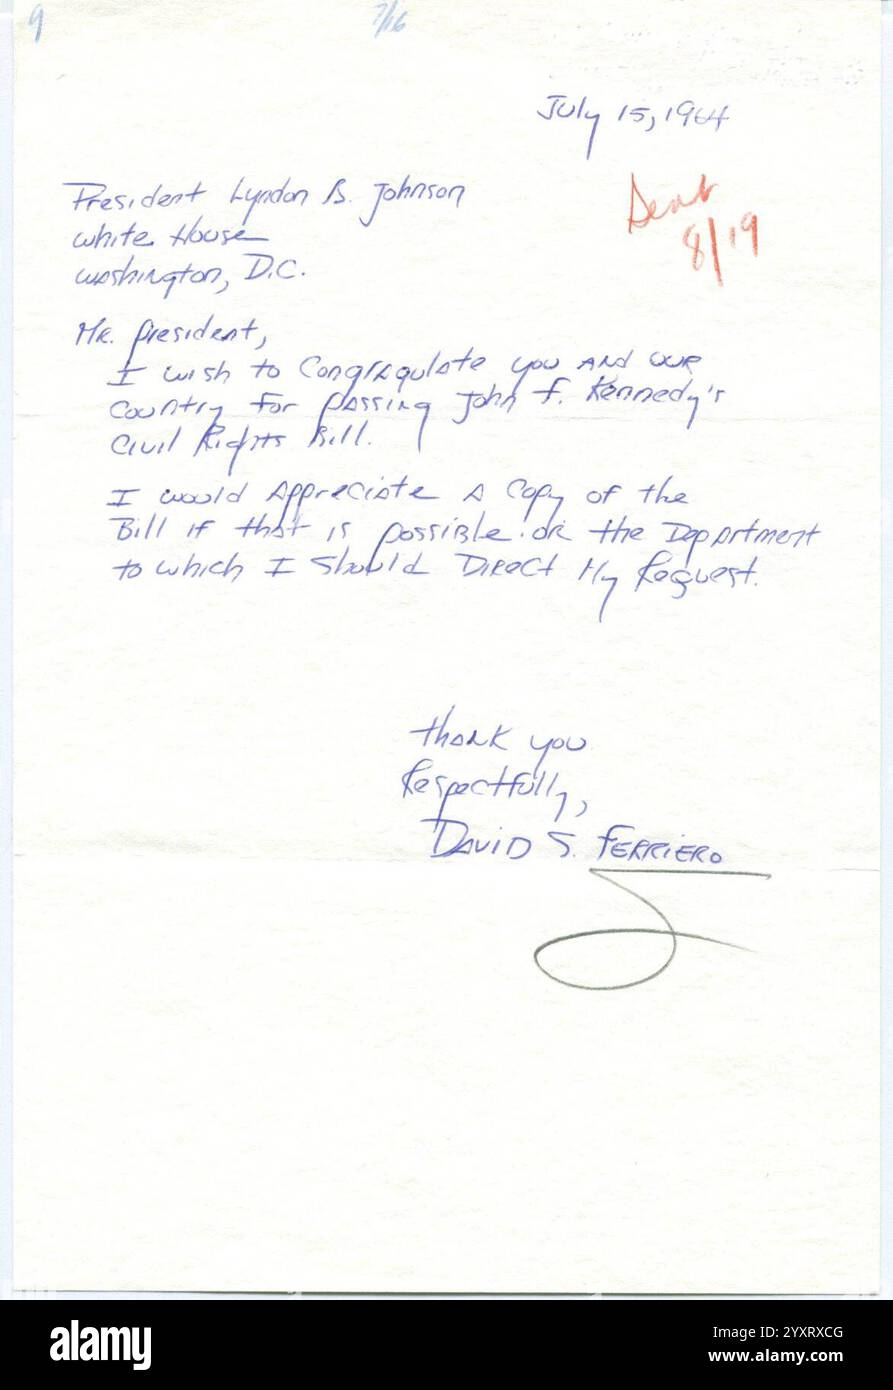 9
7/16
July 15, 1964
Sent
8/19
President Lyndon B. Johnson
White House
Washington, D.C.
Mr. President,
I wish to Congraqulate you and our
Country for passing John F. Kennedy's
Civil Rights Bill.
I would Appreciate a Copy of the
Bill if that is possible or the Department
to which I should Direct My Request.
Thank you
Respectfully,
David S. Ferriero
alamy
Image ID: 2YXRXCG
www.alamy.com